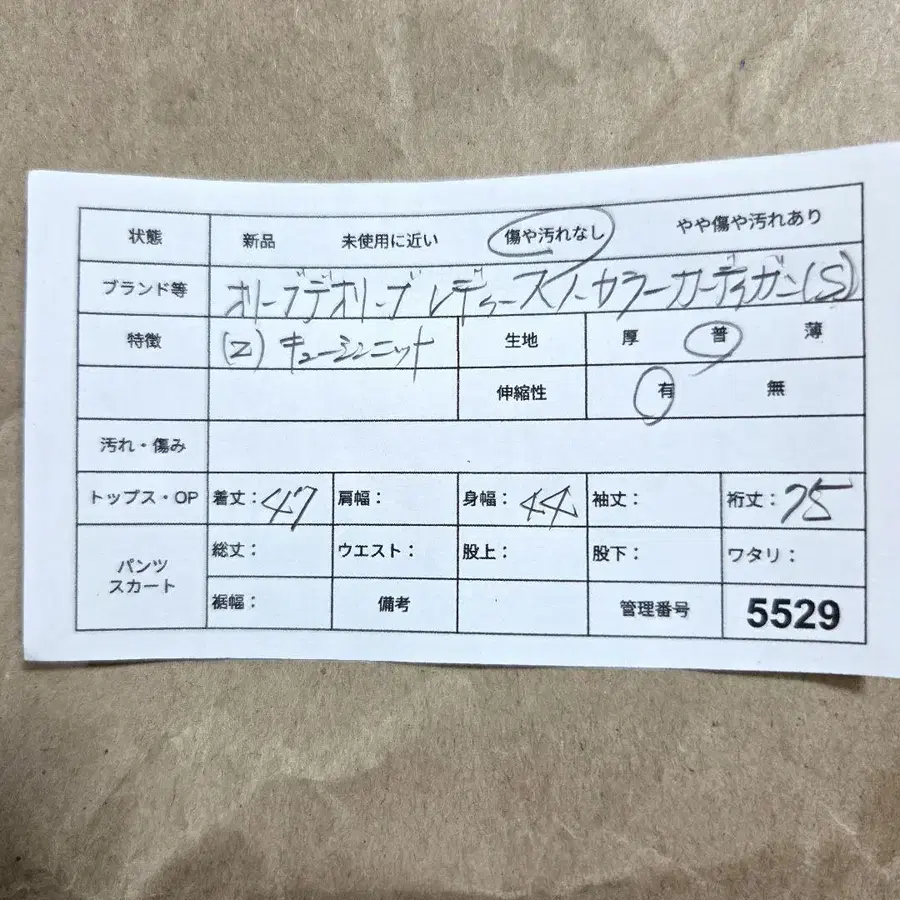 状態 新品 未使用に近い 傷や汚れなし やや傷や汚れあり
ブランド等 オリーブデオリーブ レディース ノーカラーカーディガン(S)
特徴 (Z) キューシンニット 生地 厚 普 薄
伸縮性 有 無
汚れ・傷み
トップス・OP 着丈：47 肩幅： 身幅：44 袖丈： 裄丈：75
パンツ スカート 総丈： ウエスト： 股上： 股下： ワタリ：
裾幅： 備考 管理番号 5529